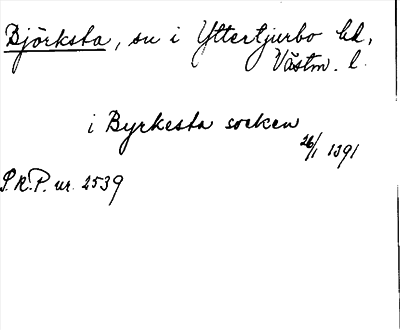 Björksta, sn i Yttertjurbo hd,
Västm. l.
i Byrkesta socken
26/1 1391
S.R.P. nr. 2539